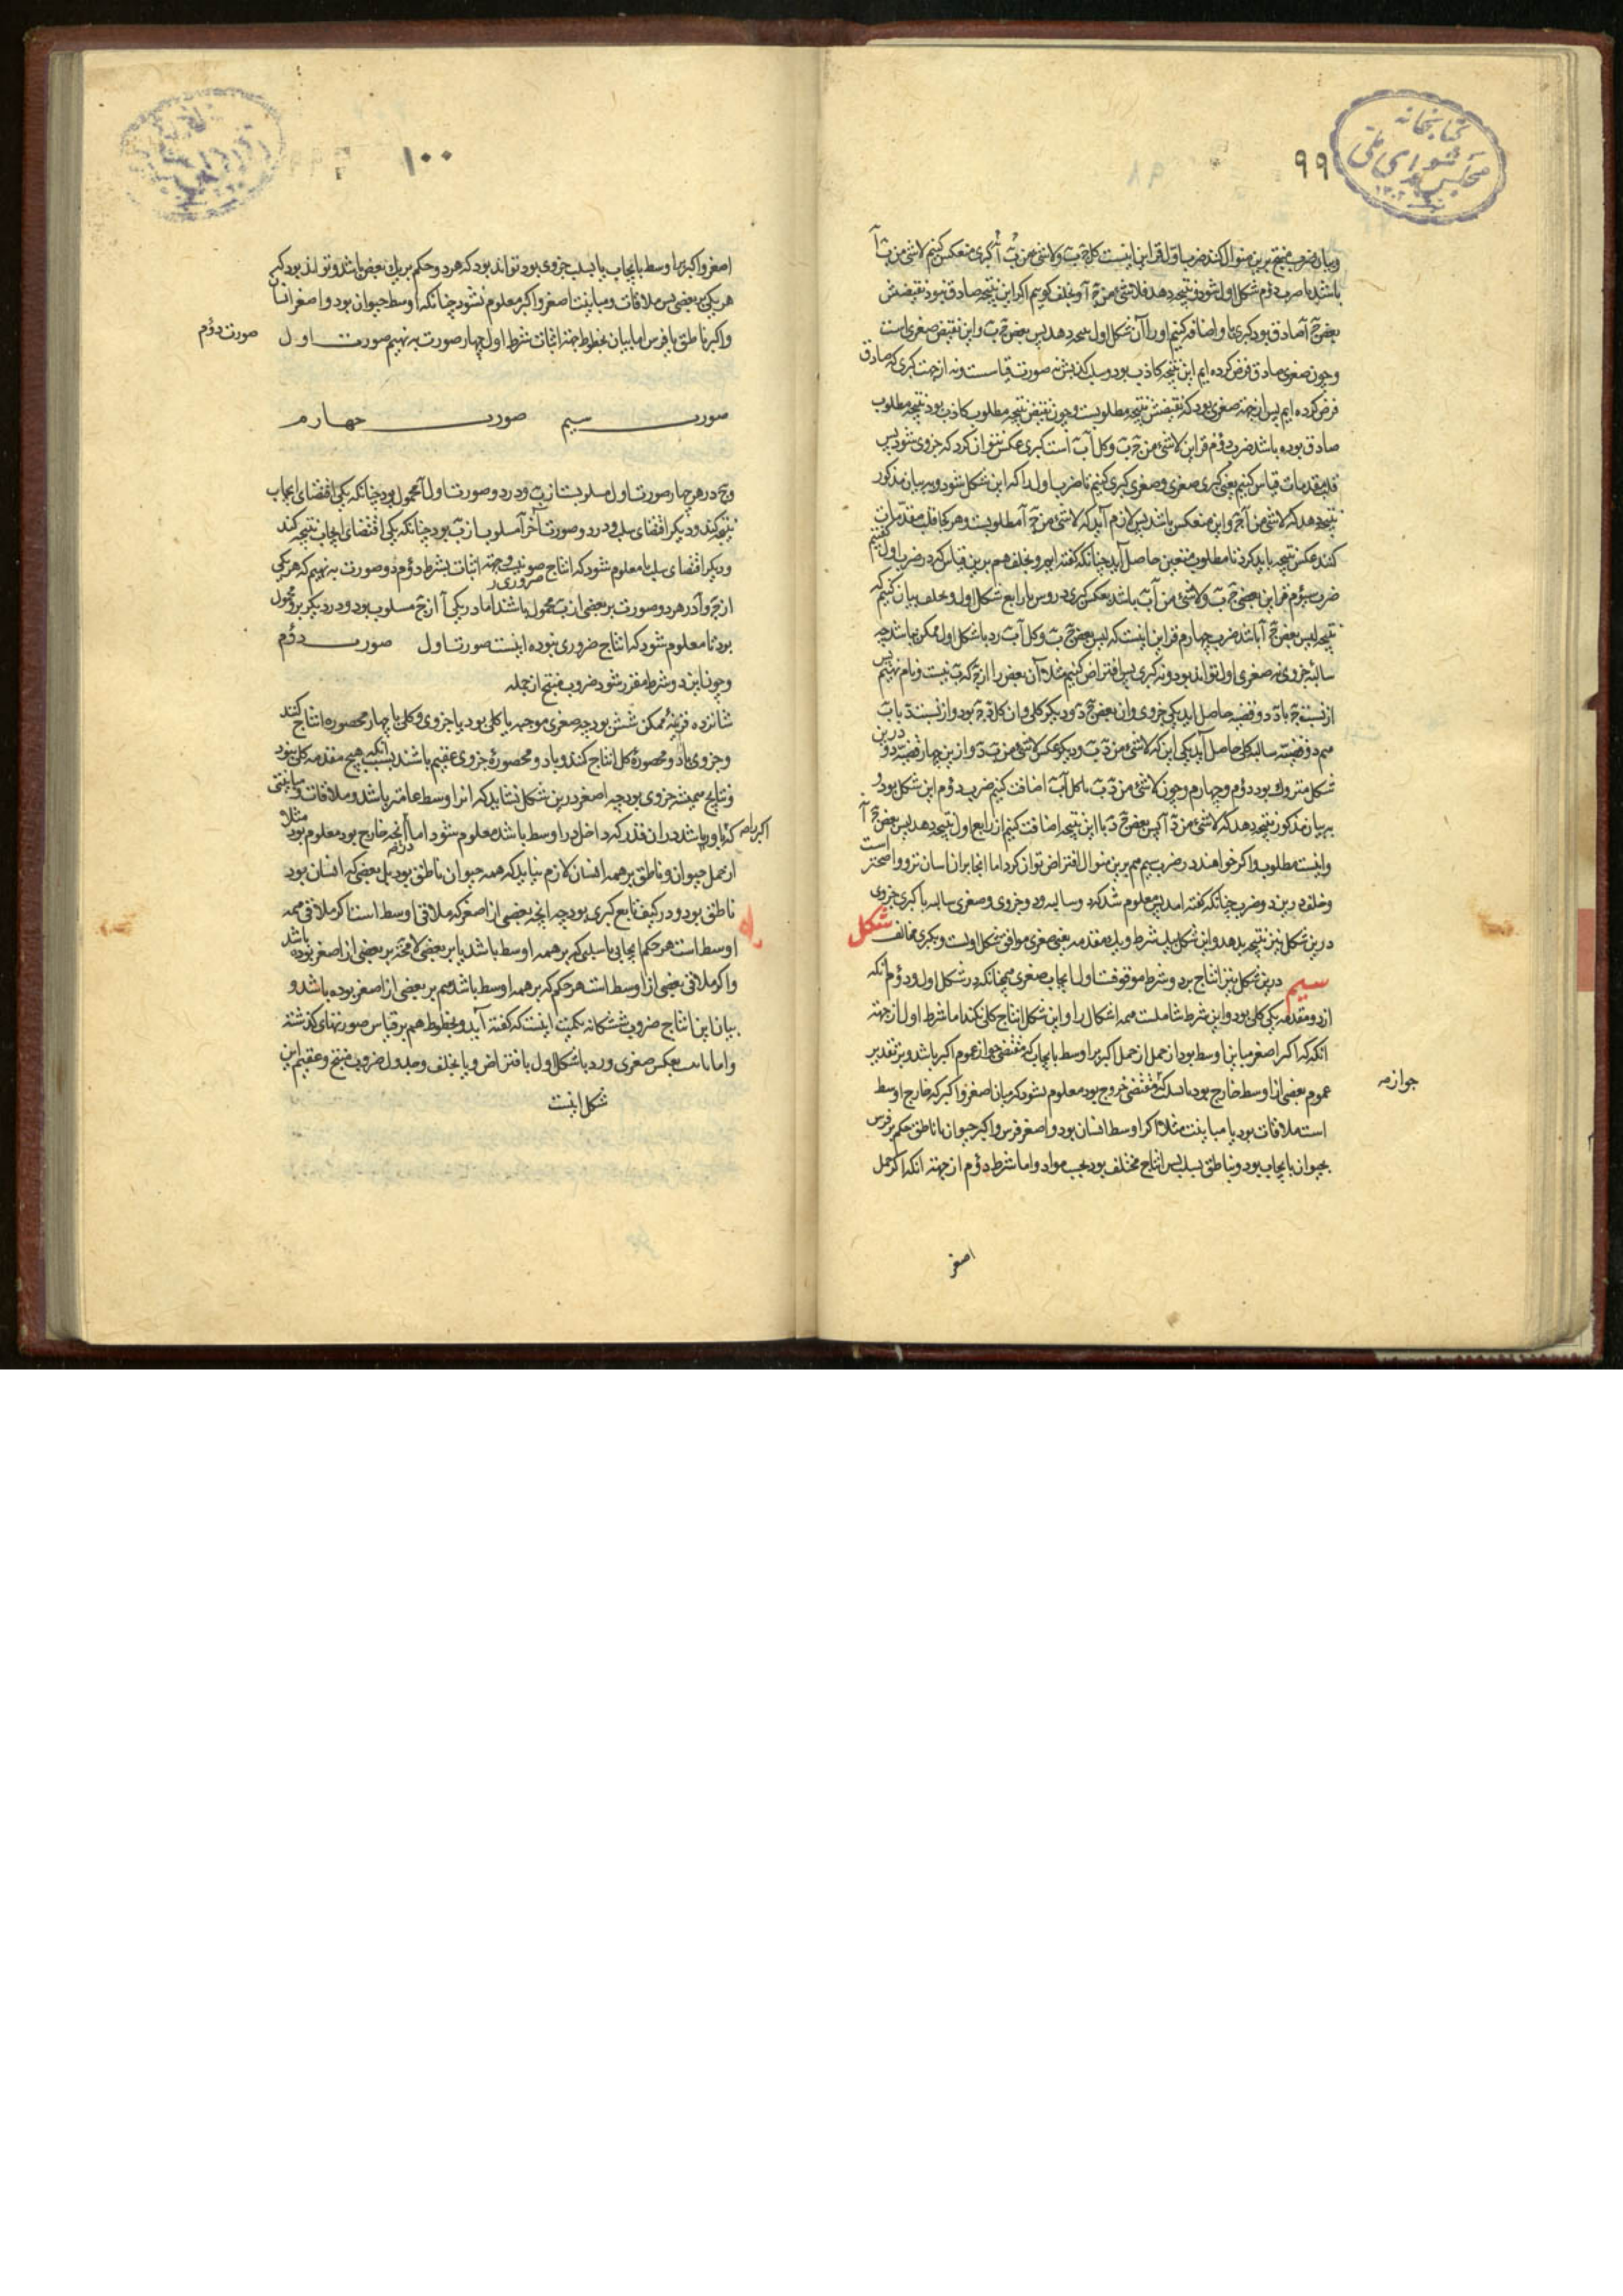 کتابخانه
مجلس شورای ملی
۹۹
وبیان ضروب منتج برین منوال کنند ضرب اول قراین اینست کل ج ب ولا شئ من ب آ کبری منعکس کنیم لا شئ من ب آ
باشد تا ضرب دوم شکل اول شود ونتیجه دهد فلا شئ من ج آ وبخلف کوییم اکر این نتیجه صادق نبود نقیضش
بعض ج آ صادق بود کبری با او اضافه کنیم اورا آن شکل اول نتیجه دهد لیس بعض ج ب واین نقیض صغری است
وچون صغری صادق فرض کرده ایم این نتیجه کاذب بود وسبب کذبش نه صورت قیاست ونه از جهت کبری که صادق
فرض کرده ایم پس از جهة صغری بود که نقیضش نتیجه مطلوبست وچون نقیض نتیجه مطلوب کاذب بود نتیجه مطلوب
صادق بوده باشد ضرب دوم قراین لا شئ من ج ب وکل آ ب است کبری عکس نتوان کرد که جزوی شود پس
قلب مقدمات قیاس کنیم یعنی کبری صغری وصغری کبری کنیم تا ضرب اول کردد از این شکل شود وبه بیان مذکور
نتیجه دهد که لا شئ من آ ج واین منعکس باشد پس لازم آید که لا شئ من ج آ مطلوبست وهر کجا قلب مقدمات
کنند عکس نتیجه باید کرد تا مطلوب متعین حاصل آید چنانکه کفته ایم وبخلف هم برین قیاس که در ضرب اول کفتیم
ضرب سیوم قراین بعض ج ب ولا شئ من آ ب باشد بعکس کبری در دوس با رابع شکل اول وبخلف بیان کنیم که
نتیجه لیس بعض ج آ باشد ضرب چهارم قراین اینست که لیس بعض ج ب وکل آ ب رد با شکل اول ممکن نباشد چه
سالبهٔ جزوی نه صغری اول تواند بود ونه کبری پس افتراض کنیم مثلا آن بعض را از ج که ب نیست د نام نهیم پس
از نسبت ج با د دو قضیه حاصل اید یکی جزوی وان بعض ج د ودیکر کلی وان کل د ج بود واز نسبت د با ب
هم دو قضیهٔ سالبهٔ کلی حاصل آید یکی این که لا شئ من د ب ودیکر عکس لا شئ من ب د واز ین چهار قضیه دو درین
شکل متروک بود دوم وچهارم وچون لا شئ من د ب با کل آ ب اضافت کنیم ضرب دوم این شکل بود و
به بیان مذکور نتیجه دهد که لا شئ من د آ پس بعض ج د با این نتیجه اضافت کنیم از رابع اول نتیجه دهد لیس بعض ج آ
واینست مطلوب واکر خواهند در ضرب سیم هم برین منوال افتراض توان کرد اما انجا بران اسان تر وواضحتر است
وخلف درین دو ضرب چنانکه کفته امد پس معلوم شد که دو سالبه ودو جزوی وصغری سالبه با کبری جزوی
درین شکل نیز نتیجه بدهد واین شکل بیک شرط وبیک مقدمه یعنی صغری موافق شکل اولست وبکبری مخالف شکل
سیم درین شکل نیز انتاج بر دو شرط موقوفست اول ایجاب صغری همچنانکه در شکل اول ودوم انکه
از دو مقدمه یکی کلی بود واین شرط شاملست همه اشکال را واین شکل انتاج کلی نکند اما شرط اول از جهة
انکه که اکر اصغر مباین اوسط بود از حمل اکبر بر اوسط بایجاب که مقتضی جواز عموم اکبر باشد وبر تقدیر
عموم بعضی از اوسط خارج بود یا بسلب که مقتضی خروج بود معلوم نشود که میان اصغر واکبر که خارج اوسط
جوازمه
است ملاقات بود یا مباینت مثلا اکر اوسط انسان بود واصغر فرس واکبر حیوان یا ناطق حکم بر فرس
بحیوان بایجاب بود وبناطق بسلب پس انتاج مختلف بود بحسب مواد واما شرط دوم از جهة انکه اکر حمل
اصغر
۱۰۰
اصغر واکبر بر اوسط بایجاب یا بسلب جزوی بود تواند بود که هر دو حکم بر یک بعض باشد وتواند بود که بر
هر یکی بر بعضی پس ملاقات ومباینت اصغر واکبر معلوم نشود چنانکه اوسط حیوان بود واصغر انسان
واکبر ناطق یا فرس اما بیان بخطوط جهة اثبات شرط اول چهار صورت بنهیم صورت اول
صورت دوم
صورت سیم صورت چهارم
وج در هر چهار صورت اول مسلوبست از ب ودر دو صورت اول آ محمول بود چنانکه یکی اقتضای ایجاب
نتیجه کند ودیکر اقتضای سلب ودر دو صورت آخر آ مسلوب از ب بود چنانکه یکی اقتضای ایجاب نتیجه کند
ودیکر اقتضای سلب تا معلوم شود که انتاج ضروری نبود وجهة اثبات شرط دوم دو صورت بنهیم که هر یکی
از ج وآ در هر دو صورت بر بعضی از ب محمول باشند اما در یکی آ از ج مسلوب بود ودر دیکر برو محمول
بود تا معلوم شود که انتاج ضروری نبوده اینست صورت اول صورت دوم
وچون این دو شرط مقرر شود ضروب منتج از جمله
شانزده قرینهٔ ممکن شش بود چه صغری موجبه یا کلی بود یا جزوی وکلی با چهار محصوره انتاج کند
وجزوی با دو محصورهٔ کلی انتاج کند وبا دو محصورهٔ جزوی عقیم باشند بسبب انکه هیچ مقدمه کلی نبود
ونتایج همیشه جزوی بود چه اصغر درین شکل نشاید که از اوسط عامتر باشد وملاقات ومباینتی
اکبر را که باو باشد در ان قدر که داخل در اوسط باشد معلوم شود اما انچه خارج بود معلوم نبود مثلا
از حمل حیوان وناطق بر همه انسان لازم نیاید که همه حیوان ناطق بود بل بعضی که انسان بود
ناطق بود ودر کیف تابع کبری بود چه انچه بعضی از اصغر که ملاقی اوسط است اکر ملاقی همه
اوسط است هر حکم ایجابی یا سلبی که بر همه اوسط باشد یا بر بعضی لا محاله بر بعضی از اصغر بوده باشد
واکر ملاقی بعضی از اوسط است هر حکم که بر همه اوسط باشد هم بر بعضی از اصغر بوده باشد و
بیان این انتاج ضروب ششکانه بکمیت اینست که کفته آید وبخطوط هم بر قیاس صورتهای کذشته
واما بعکس صغری ورد با شکل اول یا بافتراض ویا بخلف وجدول ضروب منتج وعقیم این
شکل اینست